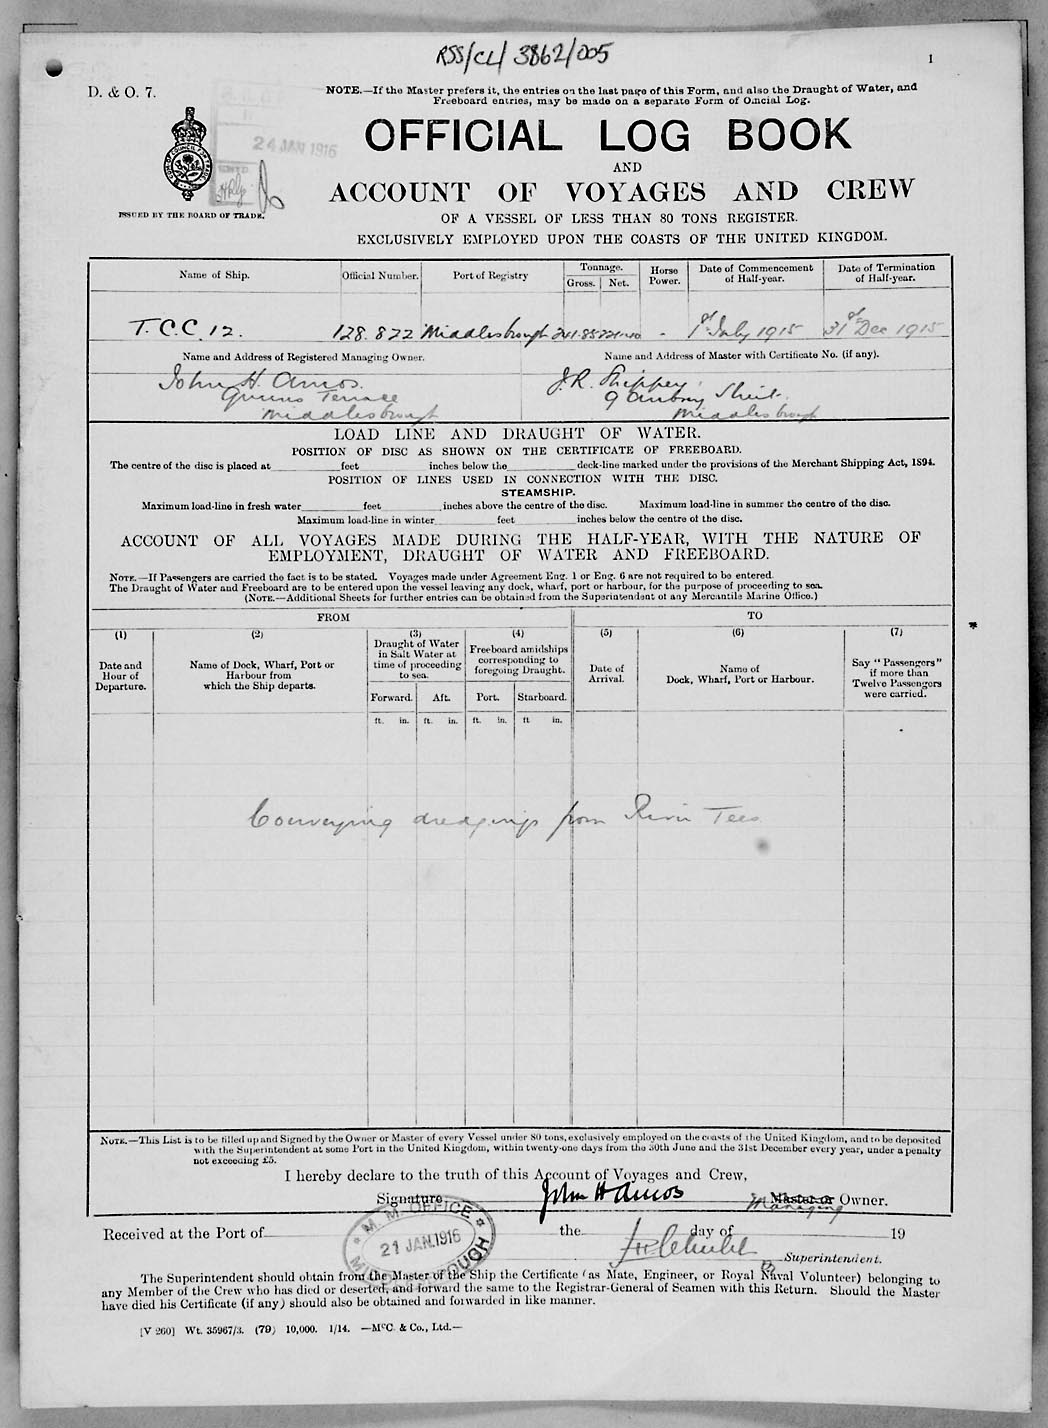 RSS/CL/3862/005
1
D. & O. 7.
NOTE.—If the Master prefers it, the entries on the last page of this Form, and also the Draught of Water, and
Freeboard entries, may be made on a separate Form of Official Log.
24 JAN 1916
OFFICIAL LOG BOOK
AND
ACCOUNT OF VOYAGES AND CREW
ISSUED BY THE BOARD OF TRADE.
OF A VESSEL OF LESS THAN 80 TONS REGISTER.
EXCLUSIVELY EMPLOYED UPON THE COASTS OF THE UNITED KINGDOM.
Name of Ship. Official Number. Port of Registry Tonnage. Gross. Net. Horse Power. Date of Commencement of Half-year. Date of Termination of Half-year.
T.C.C. 12. 128.822 Middlesbrough 241.85 - 1st July 1915 31st Dec 1915
Name and Address of Registered Managing Owner. Name and Address of Master with Certificate No. (if any).
John H. Amos. J.R. Shippey
Queens Terrace 9 Street
Middlesbrough Middlesbrough
LOAD LINE AND DRAUGHT OF WATER.
POSITION OF DISC AS SHOWN ON THE CERTIFICATE OF FREEBOARD.
The centre of the disc is placed at feet inches below the deck-line marked under the provisions of the Merchant Shipping Act, 1894.
POSITION OF LINES USED IN CONNECTION WITH THE DISC.
STEAMSHIP.
Maximum load-line in fresh water feet inches above the centre of the disc. Maximum load-line in summer the centre of the disc.
Maximum load-line in winter feet inches below the centre of the disc.
ACCOUNT OF ALL VOYAGES MADE DURING THE HALF-YEAR, WITH THE NATURE OF
EMPLOYMENT, DRAUGHT OF WATER AND FREEBOARD.
NOTE.—If Passengers are carried the fact is to be stated. Voyages made under Agreement Eng. 1 or Eng. 6 are not required to be entered.
The Draught of Water and Freeboard are to be entered upon the vessel leaving any dock, wharf, port or harbour, for the purpose of proceeding to sea.
(NOTE.—Additional Sheets for further entries can be obtained from the Superintendent of any Mercantile Marine Office.)
FROM TO
(1) (2) (3) (4) (5) (6) (7)
Date and Hour of Departure.
Name of Dock, Wharf, Port or Harbour from which the Ship departs.
Draught of Water in Salt Water at time of proceeding to sea.
Freeboard amidships corresponding to foregoing Draught.
Date of Arrival.
Name of Dock, Wharf, Port or Harbour.
Say "Passengers" if more than Twelve Passengers were carried.
Forward. Aft. Port. Starboard.
ft. in. ft. in. ft. in. ft in.
Conveying dredgings from River Tees
NOTE.—This List is to be filled up and Signed by the Owner or Master of every Vessel under 80 tons, exclusively employed on the coasts of the United Kingdom, and to be deposited
with the Superintendent at some Port in the United Kingdom, within twenty-one days from the 30th June and the 31st December every year, under a penalty
not exceeding £5.
I hereby declare to the truth of this Account of Voyages and Crew,
Signature John H Amos Master or Managing Owner.
Received at the Port of the day of 19
M. M. OFFICE
21 JAN. 1916
MIDDLESBROUGH
Superintendent.
The Superintendent should obtain from the Master of the Ship the Certificate (as Mate, Engineer, or Royal Naval Volunteer) belonging to
any Member of the Crew who has died or deserted, and forward the same to the Registrar-General of Seamen with this Return. Should the Master
have died his Certificate (if any) should also be obtained and forwarded in like manner.
[V 260] Wt. 35967/3. (79) 10,000. 1/14. —McC. & Co., Ltd.—